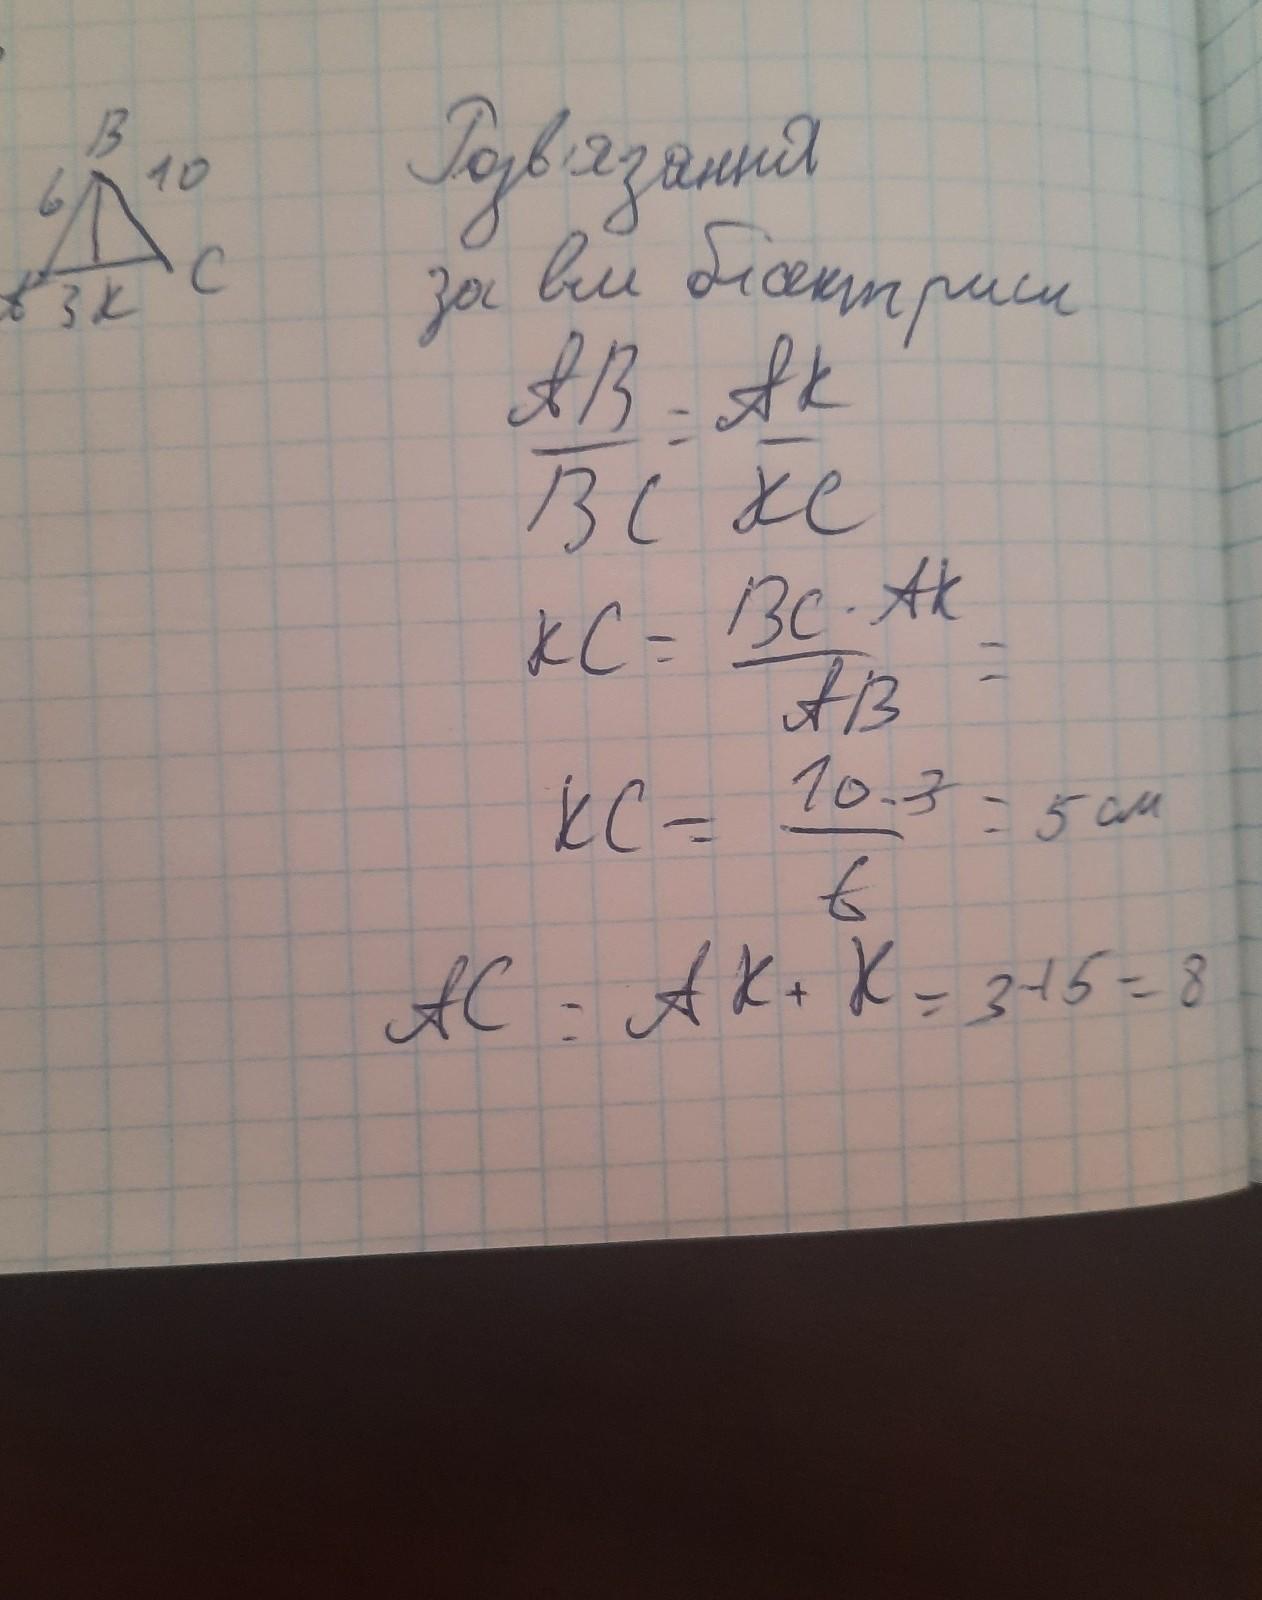 B
6 10
A 3 K C
Розв'язання
за вл бісектриси
AB/BC = AK/KC
KC = BC · AK / AB =
KC = 10 · 3 / 6 = 5 см
AC = AK + K = 3 + 5 = 8